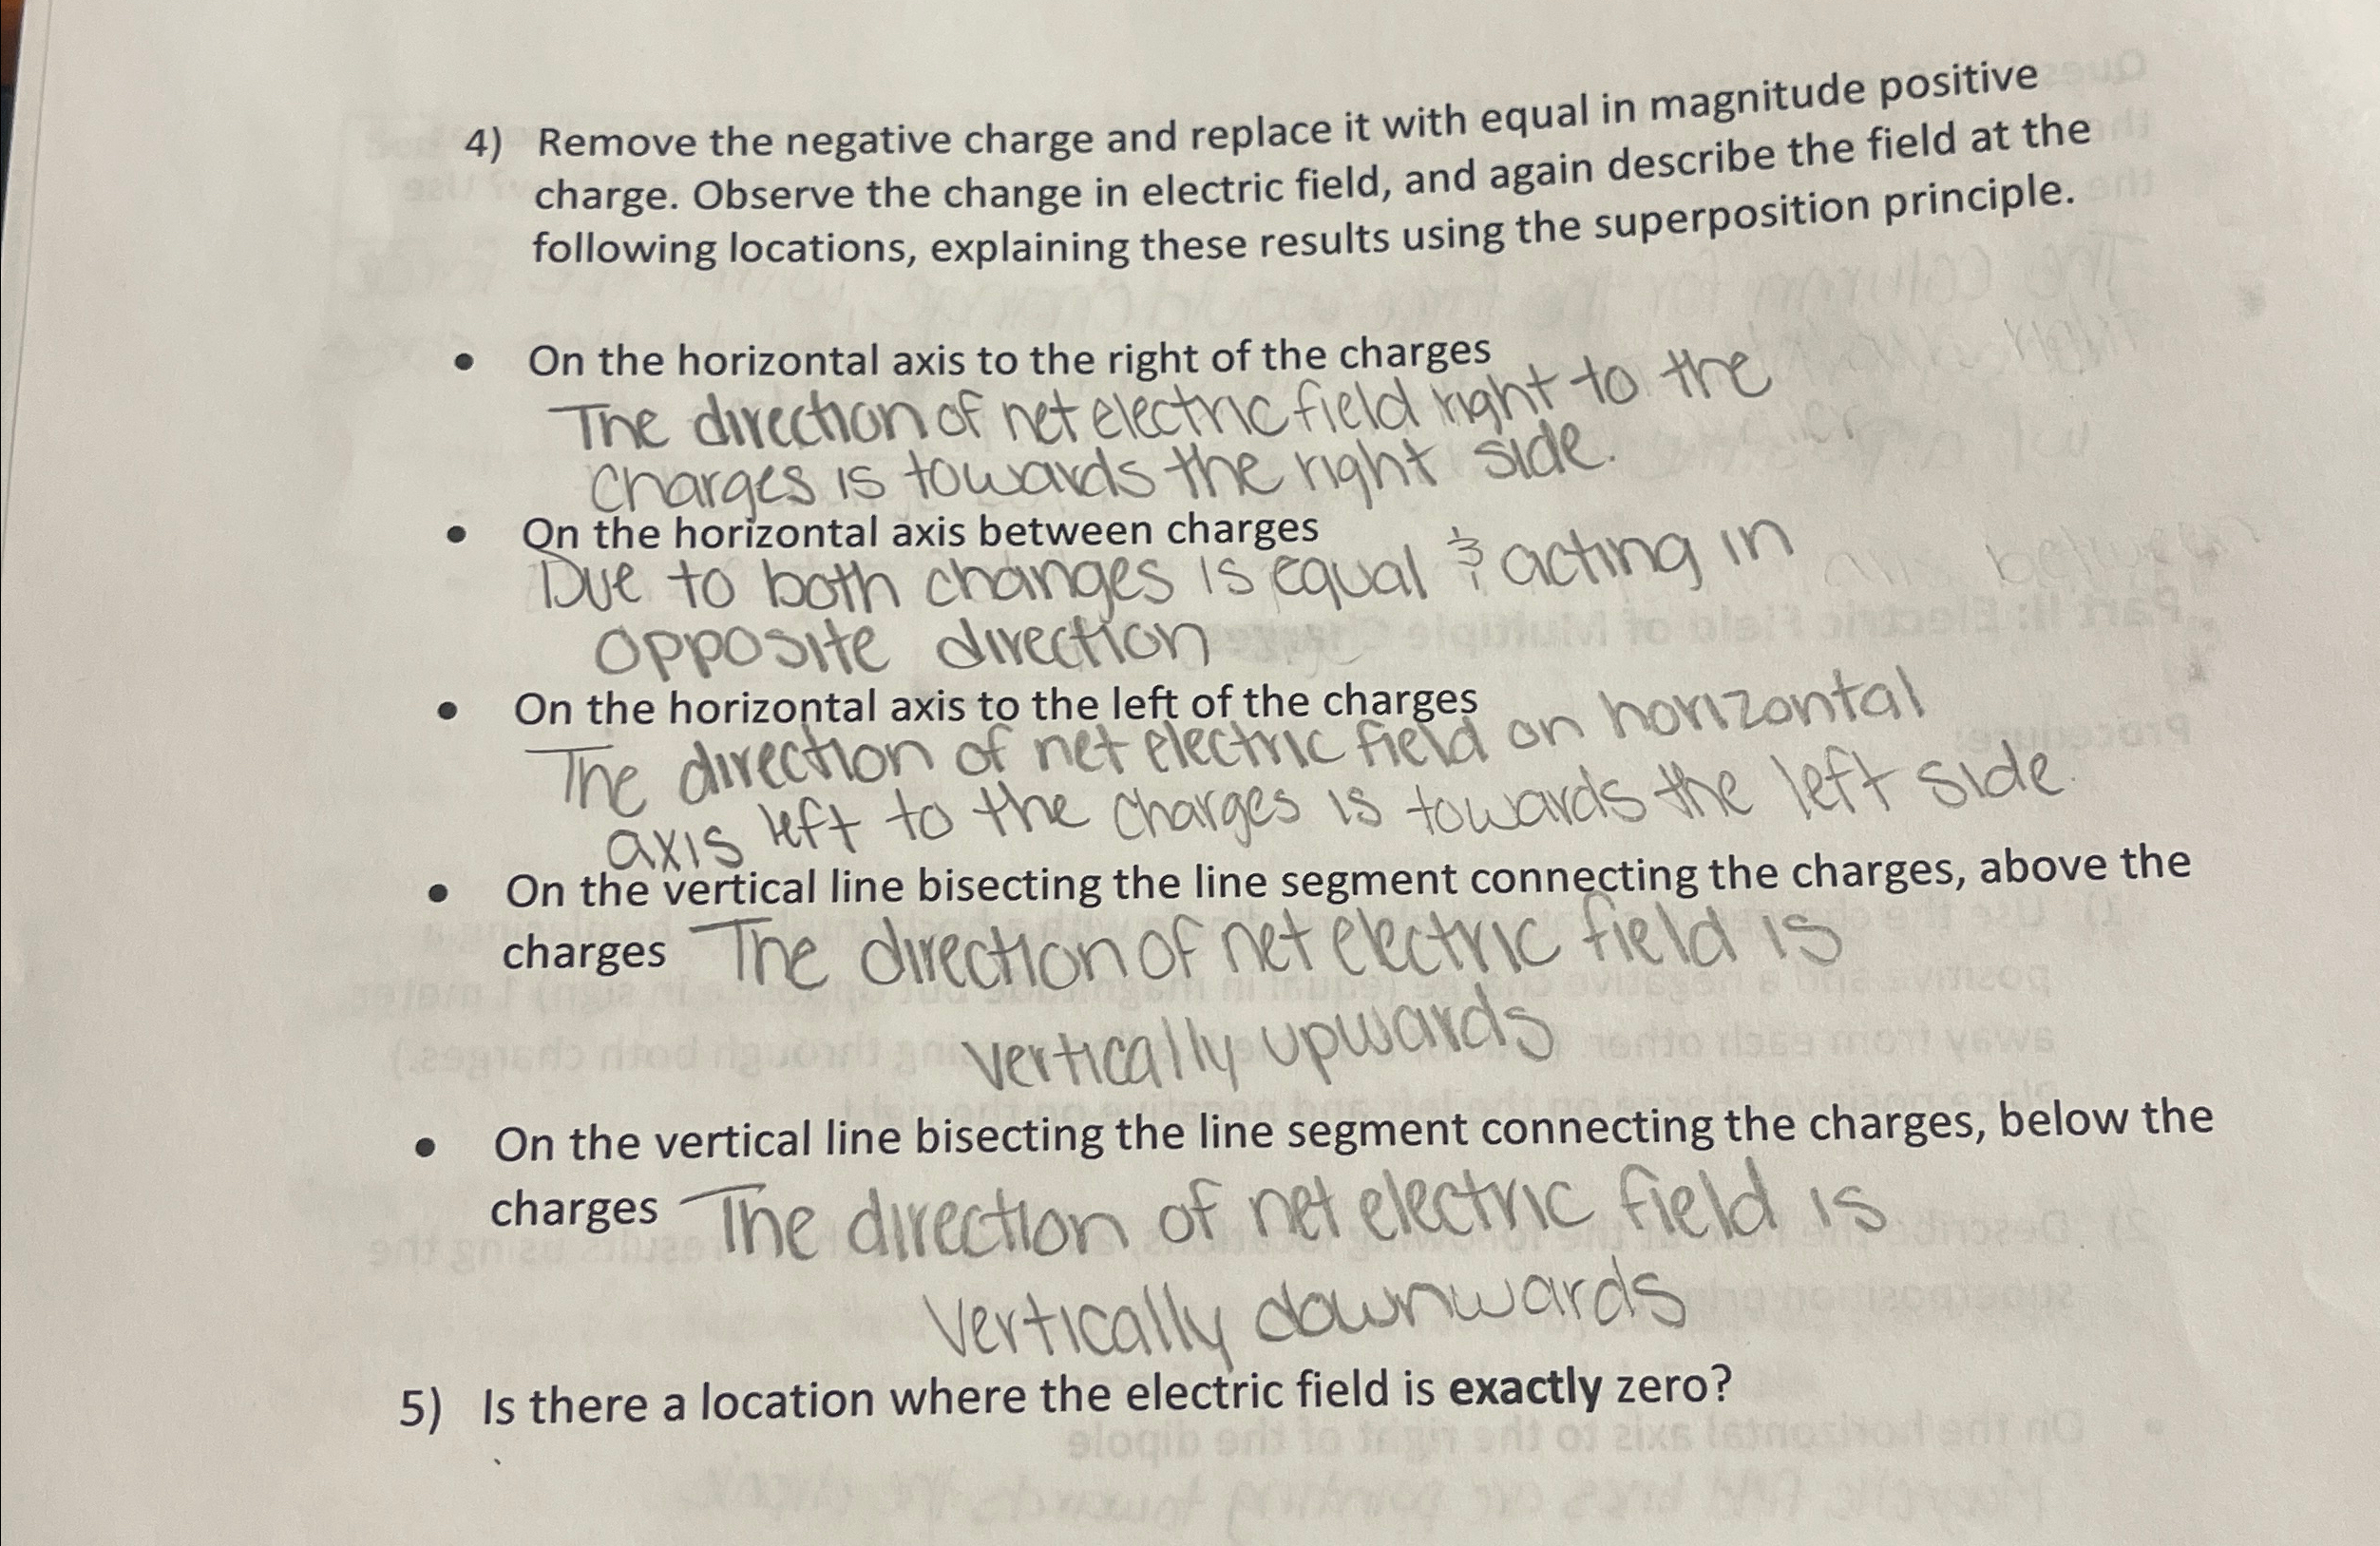 4) Remove the negative charge and replace it with equal in magnitude positive
charge. Observe the change in electric field, and again describe the field at the
following locations, explaining these results using the superposition principle.
• On the horizontal axis to the right of the charges
The direction of net electric field right to the
charges is towards the right side.
• On the horizontal axis between charges
Due to both changes is equal & acting in
opposite direction
• On the horizontal axis to the left of the charges
The direction of net electric field on horizontal
axis left to the charges is towards the left side.
• On the vertical line bisecting the line segment connecting the charges, above the
charges The direction of net electric field is
vertically upwards
• On the vertical line bisecting the line segment connecting the charges, below the
charges The direction of net electric field is
vertically downwards
5) Is there a location where the electric field is exactly zero?